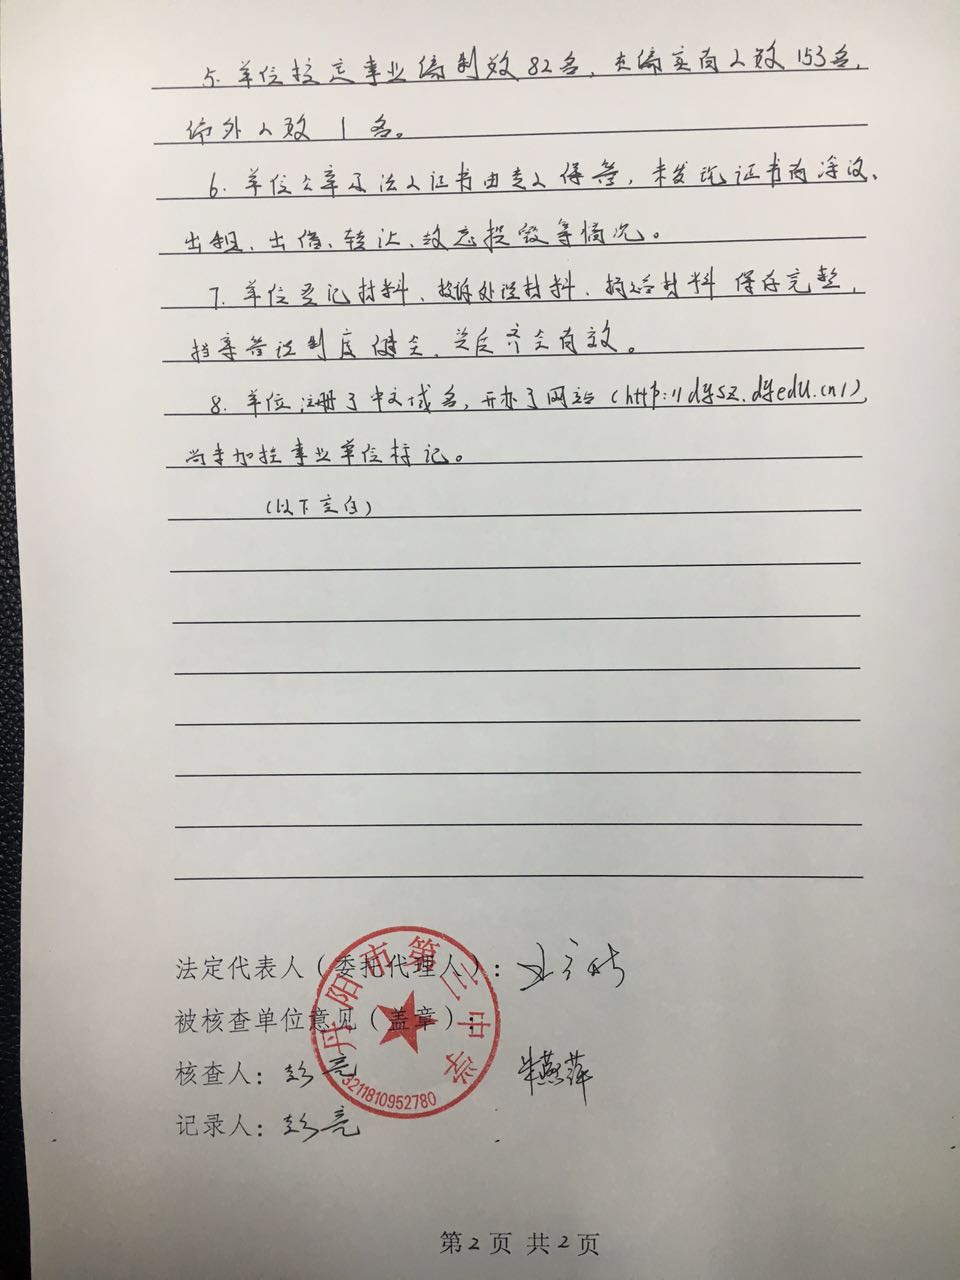 5. 单位核定事业编制数82名，在编实有人数153名，
编外人数 1 名。
6. 单位公章及法人证书由专人保管，未发现证书有涂改、
出租、出借、转让、故意损毁等情况。
7. 单位登记材料、投诉处理材料、摘要材料保存完整，
档案管理制度健全、齐全有效。
8. 单位注册了中文域名，开办了网站（http://dysz.dyedu.cn/），
尚未加挂事业单位标记。
（以下空白）
法定代表人（委托代理人）：
被核查单位意见（盖章）：
丹阳市第三中学
3211810952780
核查人：彭亮 朱燕萍
记录人：彭亮
第2页 共2页